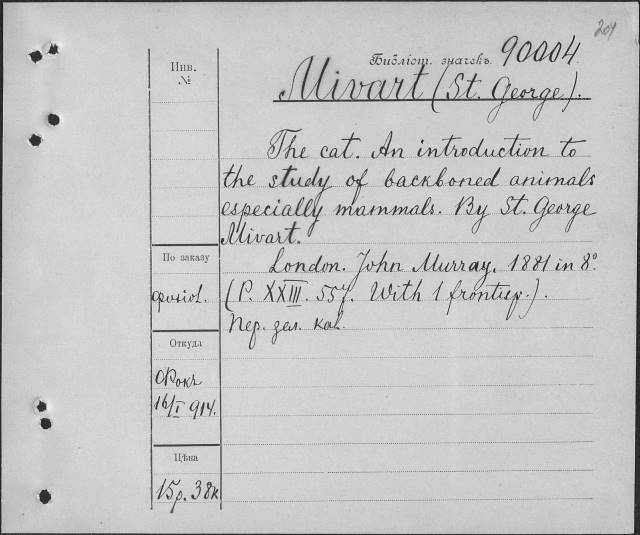 204
Библіот. значекъ 90004
Инв.
№
Mivart (St. George).
The cat. An introduction to
the study of backboned animals
especially mammals. By St. George
Mivart.
По заказу
London. John Murray. 1881 in 8°.
физіол.
(P. XXIII. 557. With 1 frontisp.).
Пер. зел. кал.
Откуда
Фокъ
16/I 914.
Цѣна
15р. 38к